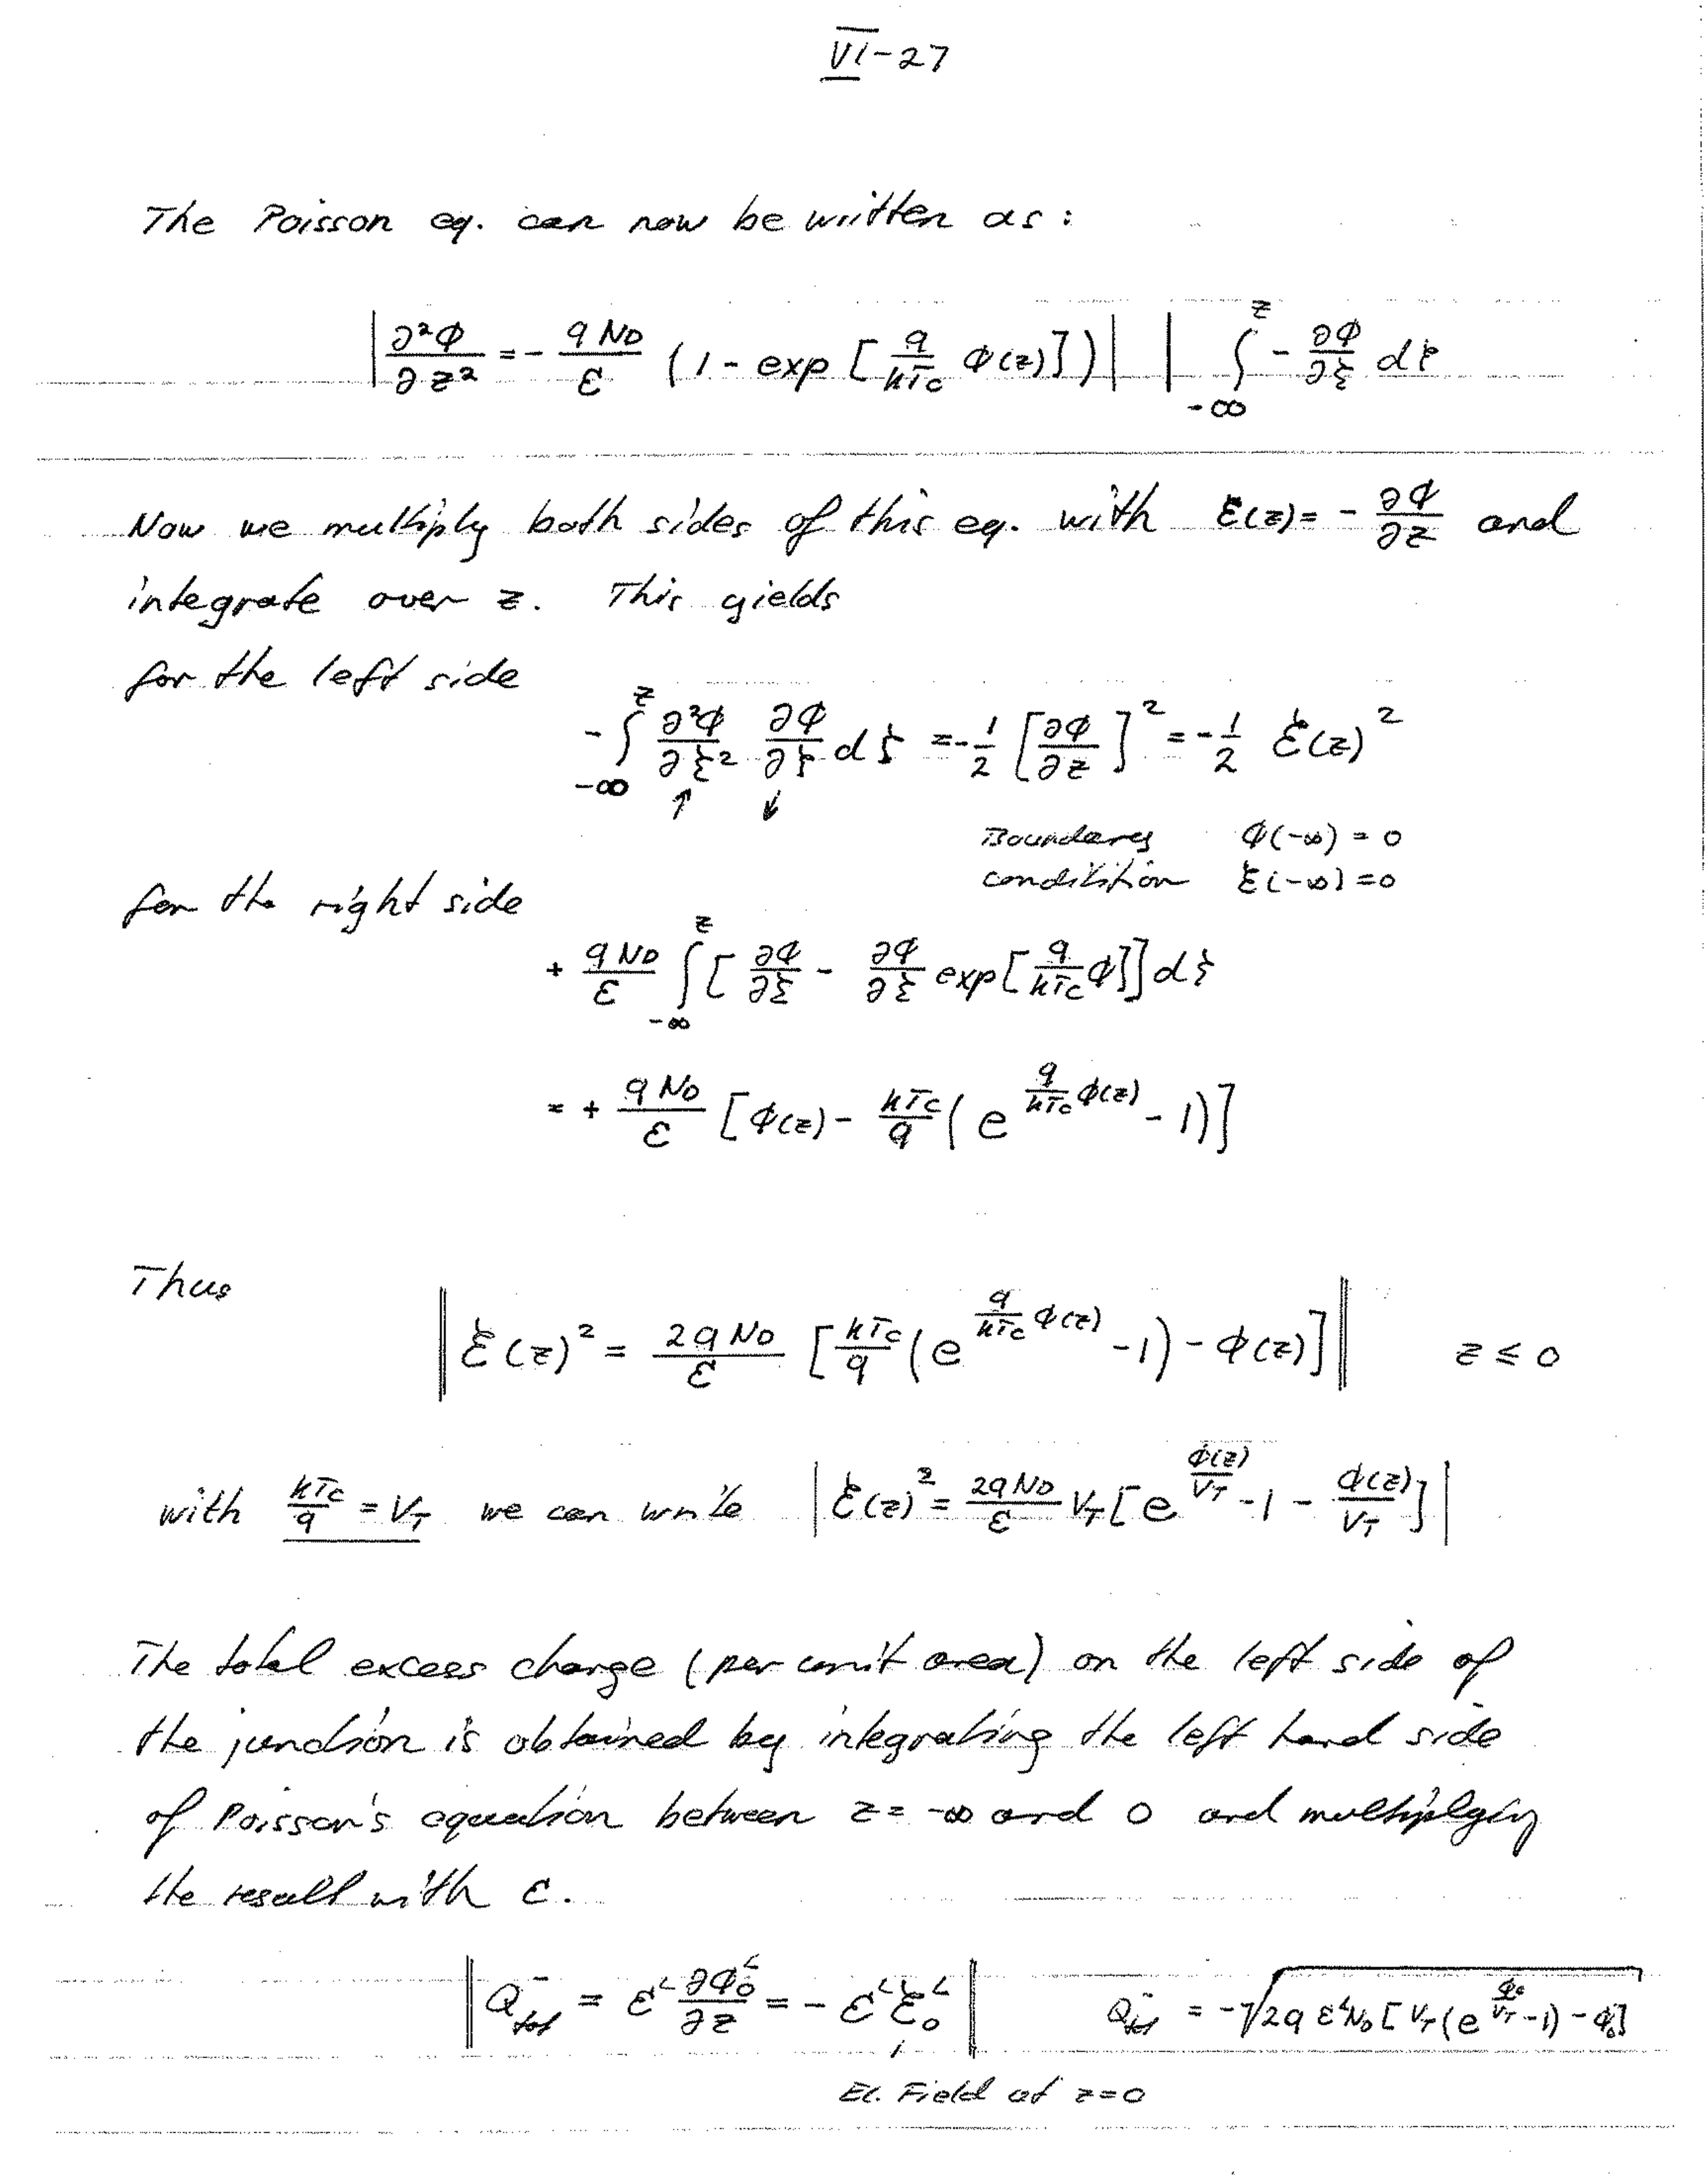 VI-27
The Poisson eq. can now be written as:
| ∂²Φ/∂z² = - qN_D/ε (1 - exp[q/kT_c Φ(z)]) | | ∫_{-∞}^{z} - ∂Φ/∂ξ dξ
Now we multiply both sides of this eq. with ℰ(z) = - ∂Φ/∂z and
integrate over z. This yields
for the left side
- ∫_{-∞}^{z} ∂²Φ/∂ξ² ∂Φ/∂ξ dξ = - 1/2 [∂Φ/∂z]² = - 1/2 ℰ(z)²
↑ ↓
Boundary Φ(-∞) = 0
condition ℰ(-∞) = 0
for the right side
+ qN_D/ε ∫_{-∞}^{z} [∂Φ/∂ξ - ∂Φ/∂ξ exp[q/kT_c Φ]] dξ
= + qN_D/ε [Φ(z) - kT_c/q (e^{q/kT_c Φ(z)} - 1)]
Thus
‖ ℰ(z)² = 2qN_D/ε [kT_c/q (e^{q/kT_c Φ(z)} - 1) - Φ(z)] ‖ z ≤ 0
with kT_c/q = V_T we can write | ℰ(z)² = 2qN_D/ε V_T [e^{Φ(z)/V_T} - 1 - Φ(z)/V_T] |
The total excess charge (per unit area) on the left side of
the junction is obtained by integrating the left hand side
of Poisson's equation between z = -∞ and 0 and multiplying
the result with ε.
‖ Q⁻_tot = ε^L ∂Φ_0^L/∂z = - ε^L ℰ_0^L ‖ Q⁻_tot = -√(2q ε^L N_D [V_T (e^{Φ_0/V_T} - 1) - Φ_0])
El. Field at z=0